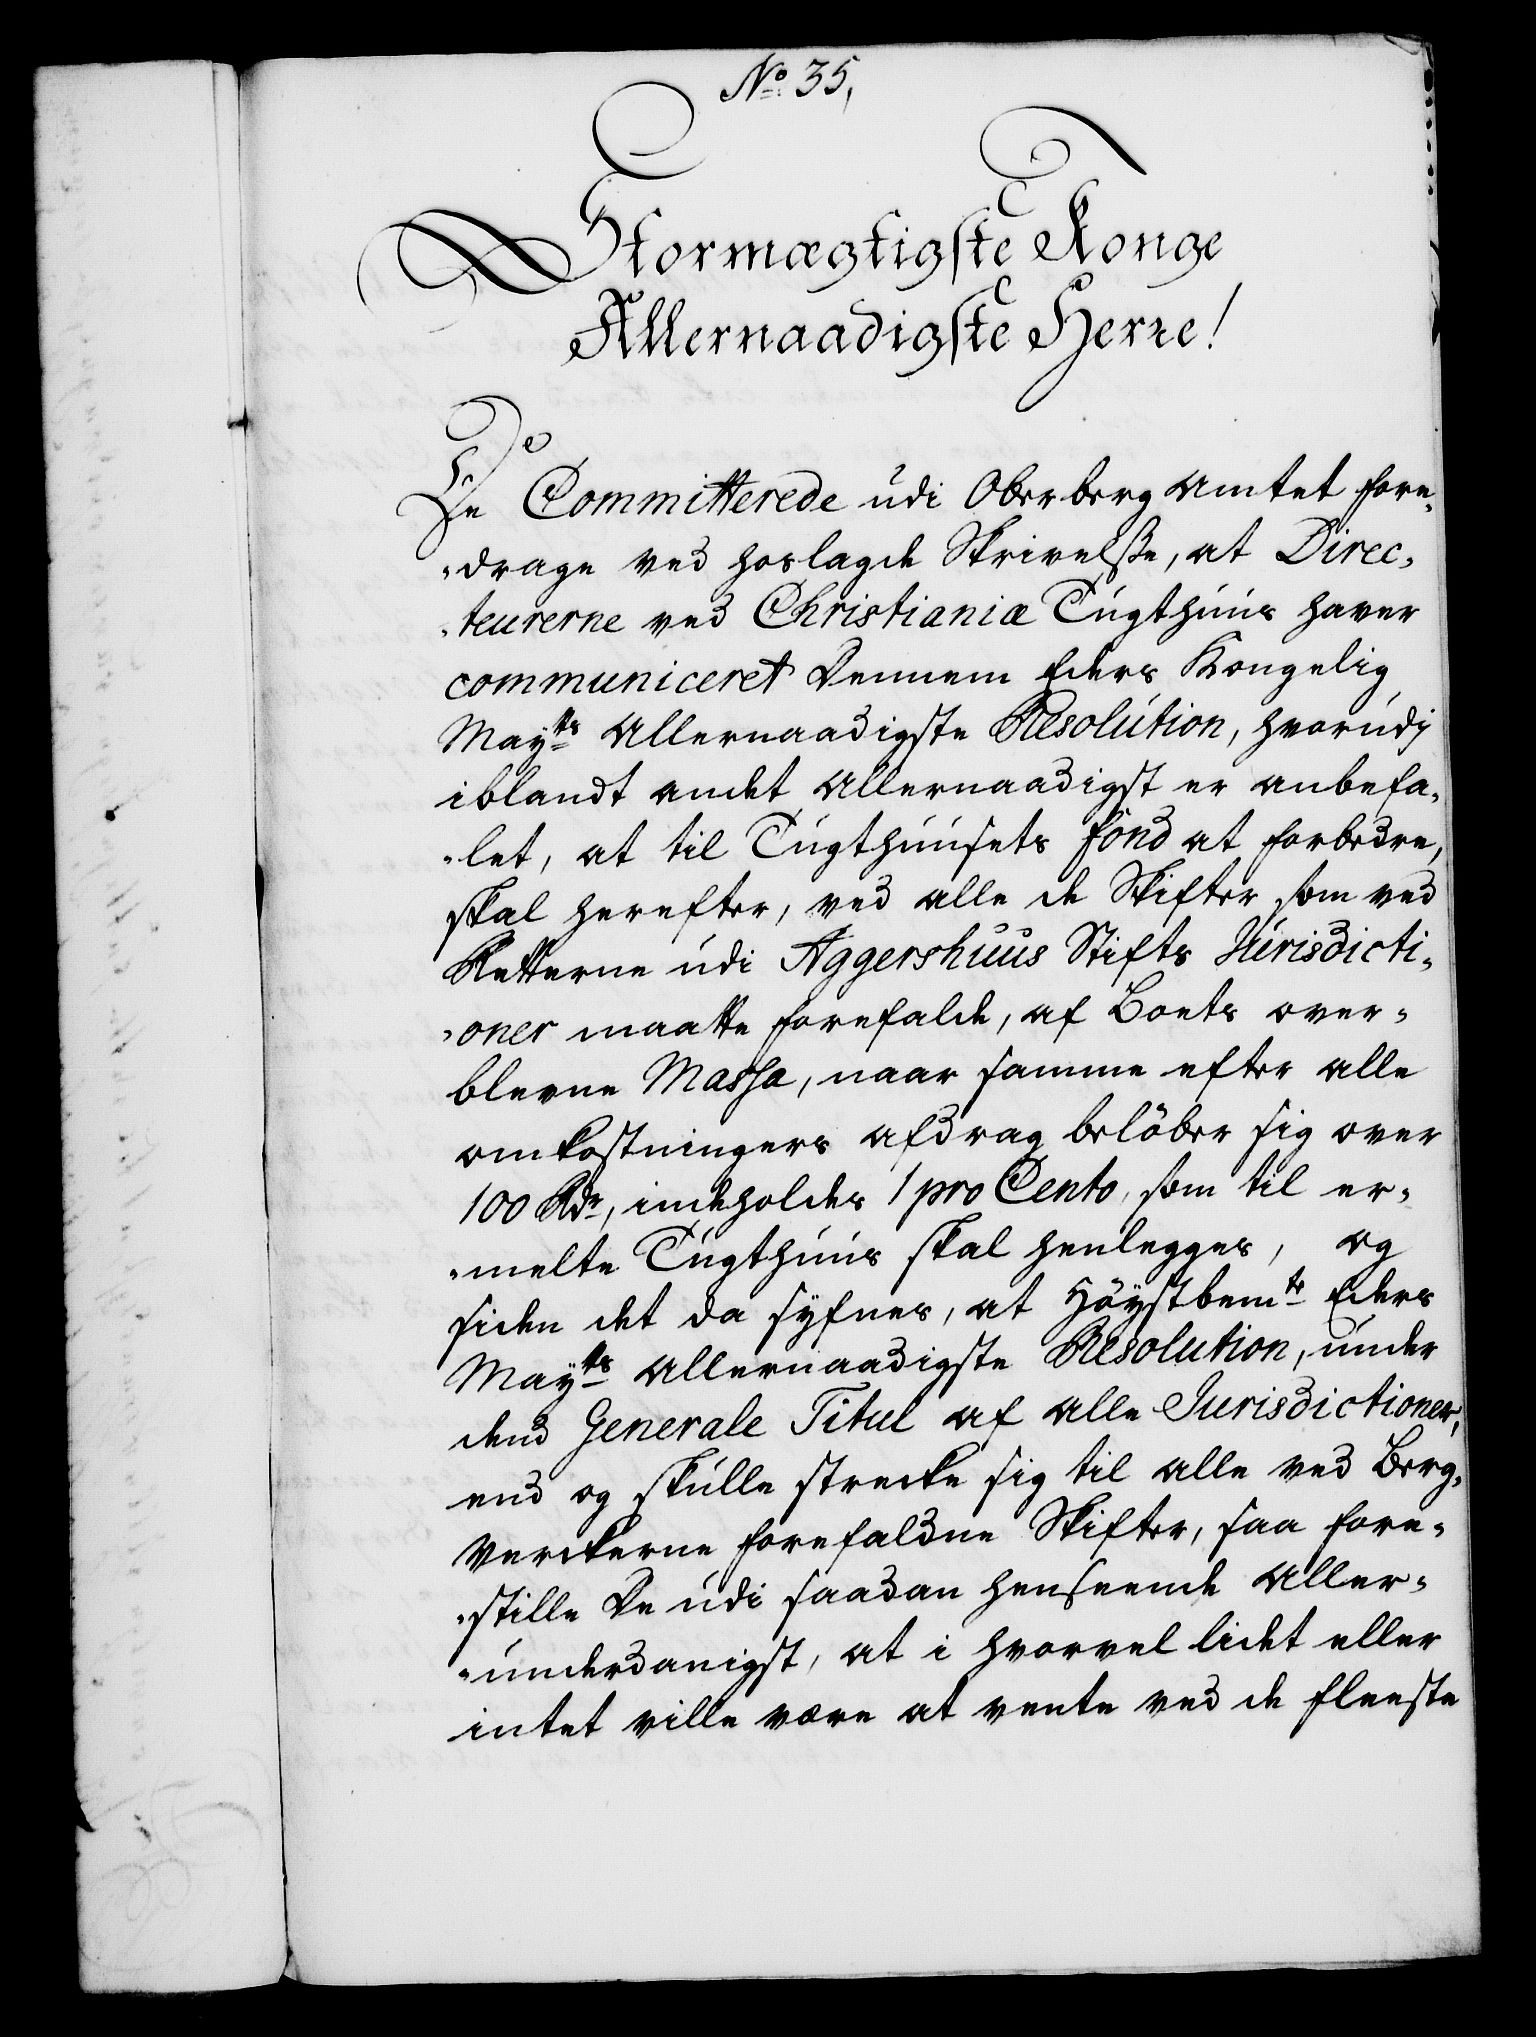 No 35,
Stormægtigste Konge
Allernaadigste Herre!
De Committerede udi Oberberg Amtet fore-
-drage ved hoslagde Skrivelße, at Direc-
-teurerne ved Christianiæ Tugthuus haver
communiceret Dennem Eders Kongelig
Mayts Allernaadigste Resolution, hvorudj
iblandt andet Allernaadigst er anbefa-
-let, at til Tugthuusets fond at forbedre,
skal herefter, ved alle de Skifter som ved
Retterne udi Aggershuus Stifts Jurisdicti-
-oner maatte forefalde, af Boets over-
blevne Massa, naar samme efter alle
omkostningers afdrag belöber sig over
100 Rdr, indeholdes 1 pro Cento, som til er-
-melte Tugthuus skal henlegges, og
siden det da syfnes, at Höystbemte Eders
Mayts Allernaadigste Resolution, under
dend Generale Titul af alle Jurisdictioner,
end og skulle strecke sig til alle ved Berg-
Verckerne forefaldne Skifter, saa fore-
-stille De udi saadan henseende Aller-
-underdanigst, at i hvorvel lidet eller
intet ville være at vente ved de fleeste